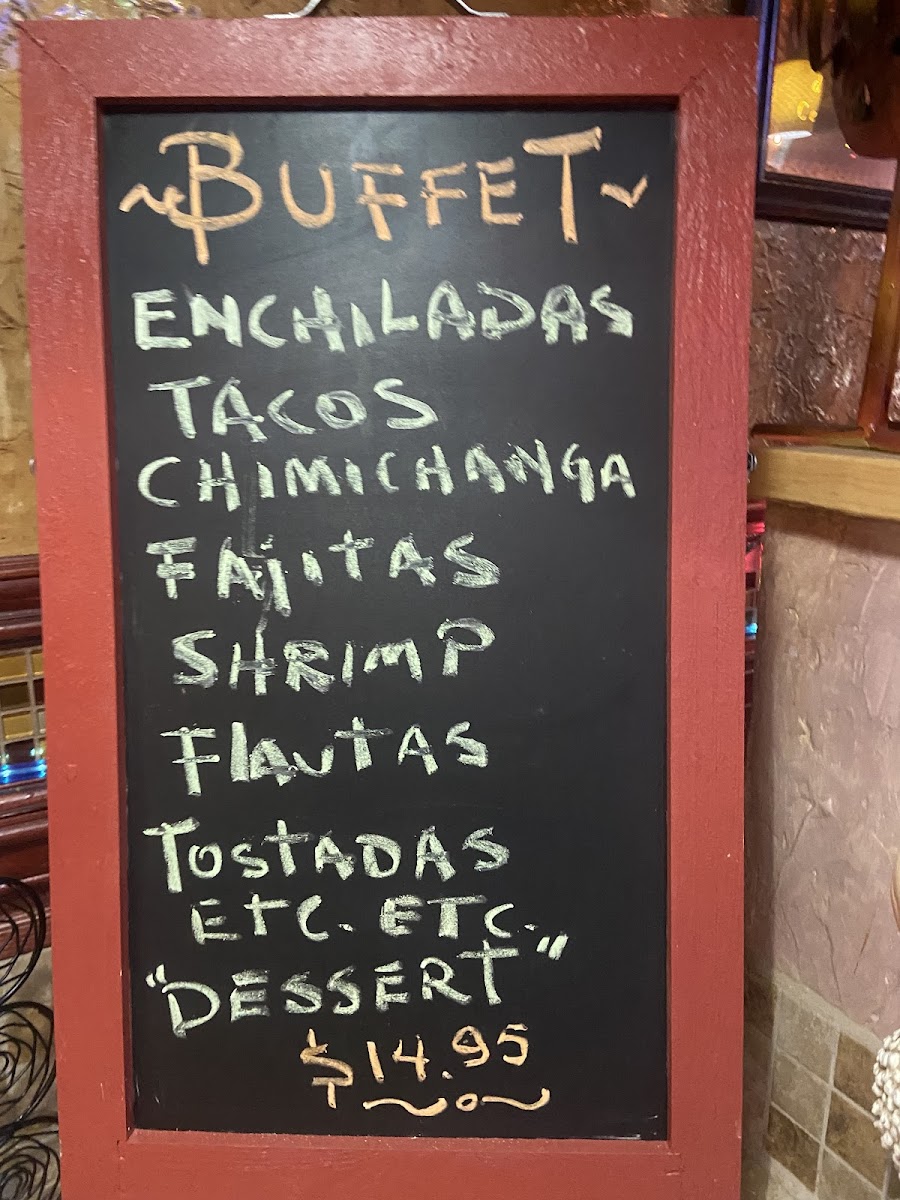 ~BUFFET~
ENCHILADAS
TACOS
CHIMICHANGA
FAJITAS
SHRIMP
FlAUTAS
TOSTADAS
ETC. ETC.
"DESSERT"
$14.95